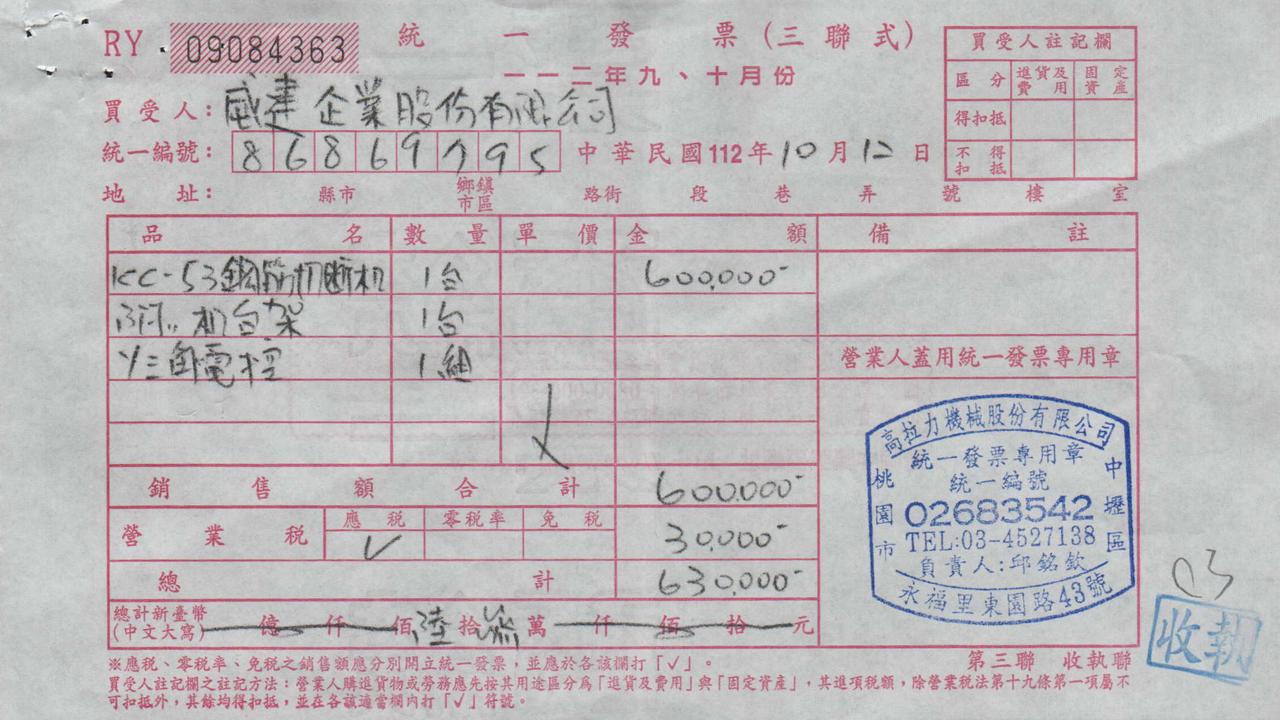 RY 09084363 統一發票(三聯式)
一一二年九、十月份
買受人註記欄
區分 進貨及費用 固定資產
得扣抵
不得扣抵
買受人:威建企業股份有限公司
統一編號:86869795 中華民國112年10月12日
地址: 縣市 鄉鎮市區 路街 段 巷 弄 號 樓 室
品名 數量 單價 金額 備註
KC-53鋼筋切斷机 1台 600,000-
附:机台架 1台
電控 1組
營業人蓋用統一發票專用章
銷售額合計 600,000-
營業稅 應稅 零稅率 免稅 30,000-
✓
總計 630,000-
總計新臺幣(中文大寫) 億 仟 佰 陸 拾 萬 仟 佰 拾 元
高拉力機械股份有限公司
統一發票專用章
統一編號
02683542
TEL:03-4527138
負責人:邱銘欽
桃園市
中壢區
永福里東園路43號
03
收執
第三聯 收執聯
※應稅、零稅率、免稅之銷售額應分別開立統一發票,並應於各該欄打「✓」。
買受人註記欄之註記方法:營業人購進貨物或勞務應先按其用途區分為「進貨及費用」與「固定資產」,其進項稅額,除營業稅法第十九條第一項屬不
可扣抵外,其餘均得扣抵,並在各該適當欄內打「✓」符號。